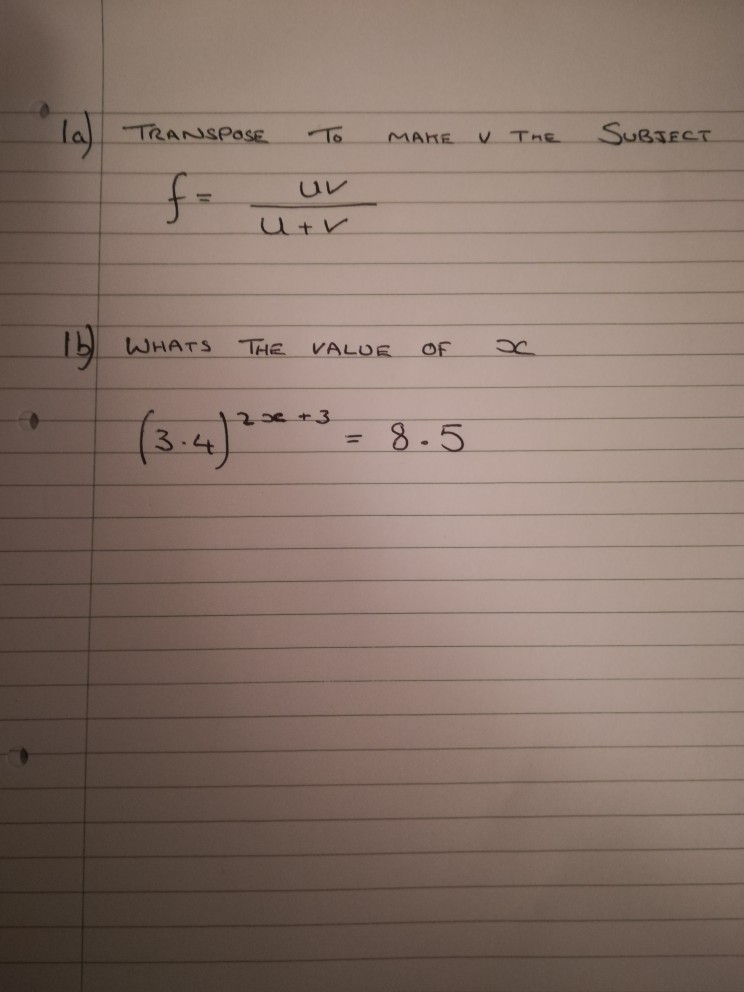 1a) TRANSPOSE TO MAKE V THE SUBJECT
f = uv
u + v
1b) WHATS THE VALUE OF x
(3.4)^{2x + 3} = 8.5